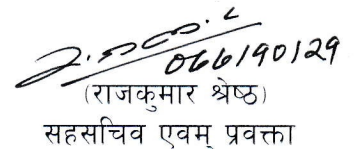 066190129
(राजकुमार श्रेष्ठ)
सहसचिव एवम् प्रवक्ता